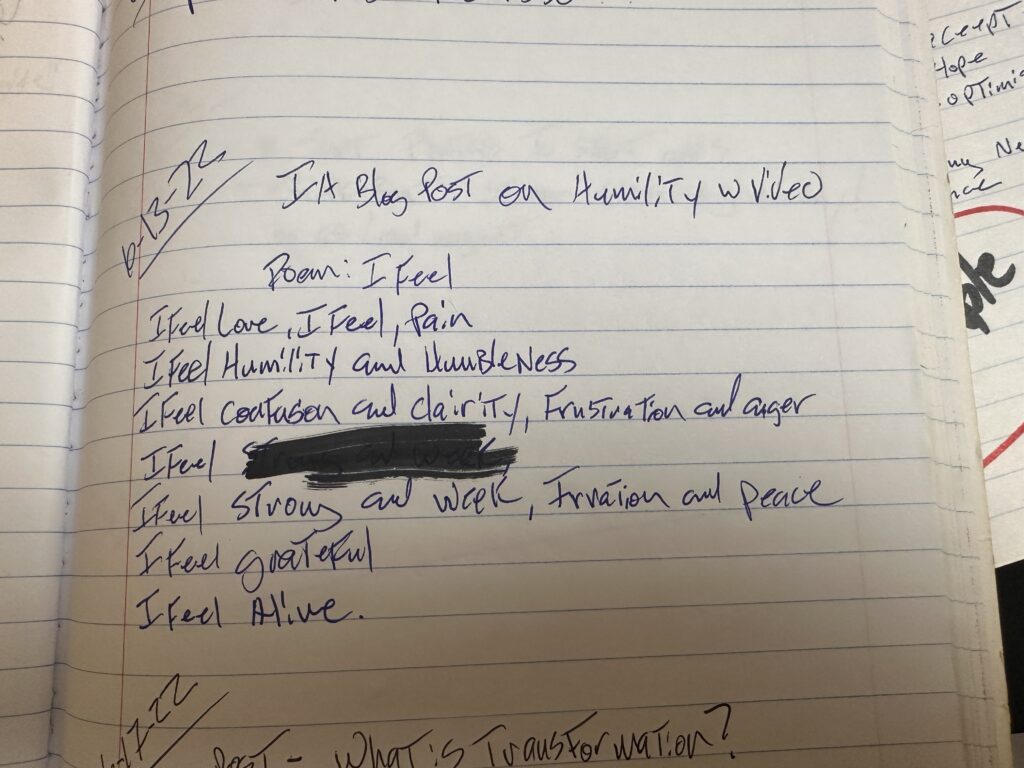 IA Blog Post on Humility w Video
Poem: I Feel
I Feel Love, I Feel, Pain
I Feel Humility and Humbleness
I Feel confusion and clairity, Frustration and anger
I Feel
I Feel Strong and week, and peace
I Feel grateful
I Feel Alive.
Post - What is Transformation?
Hope